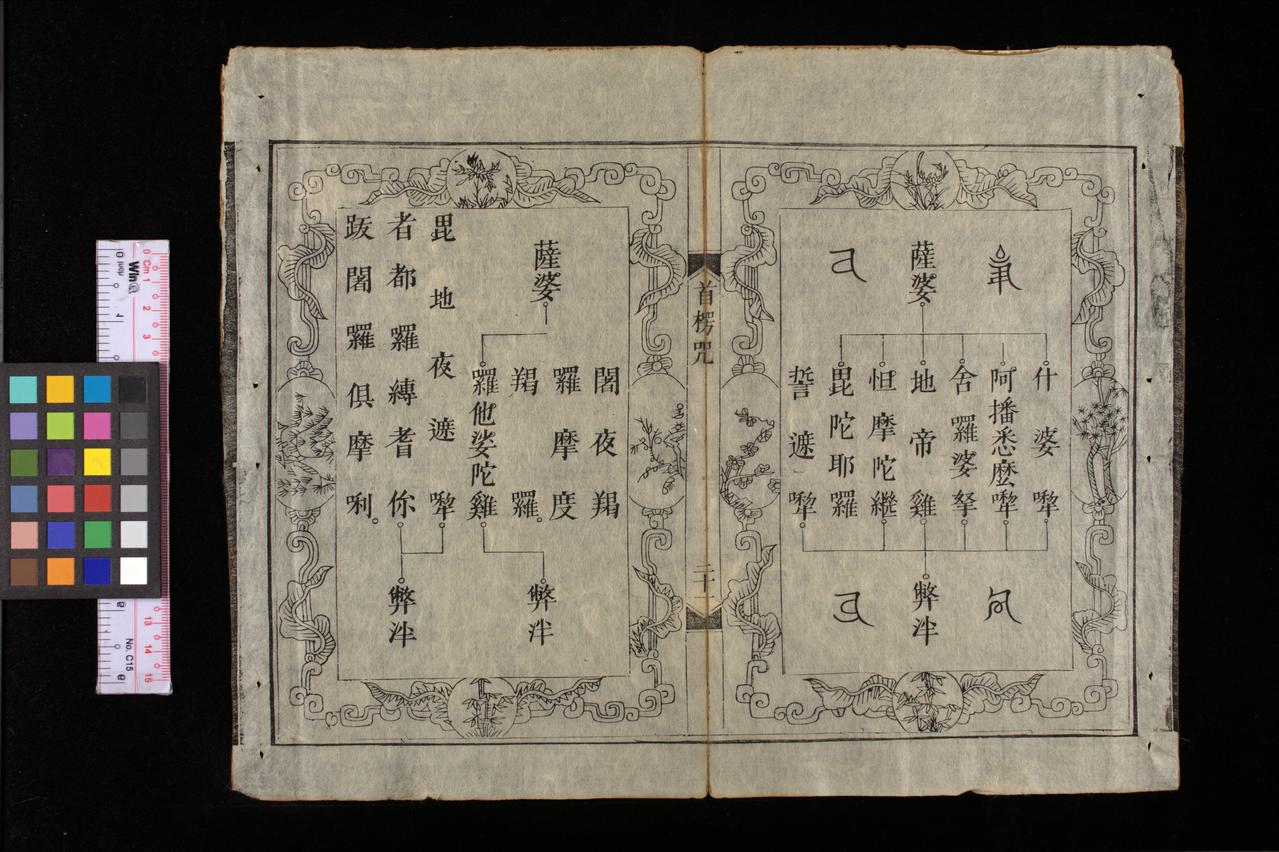 薩婆
什婆犂
阿播悉麼犂
舍羅婆拏
地帝雞
怛摩陀繼
毘陀耶羅
誓遮犂
弊泮
首楞咒
二十一
薩婆
闍夜羯
羅摩度
羯羅
羅他娑陀雞
弊泮
毘地夜遮犂
者都羅縛耆你
弊泮
跋闍羅俱摩唎
0 Cm 1
2
3
13
14
15
No. C15